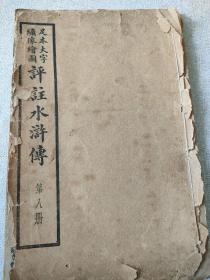 足本大字
繡像繪圖
評註水滸傳
第八冊